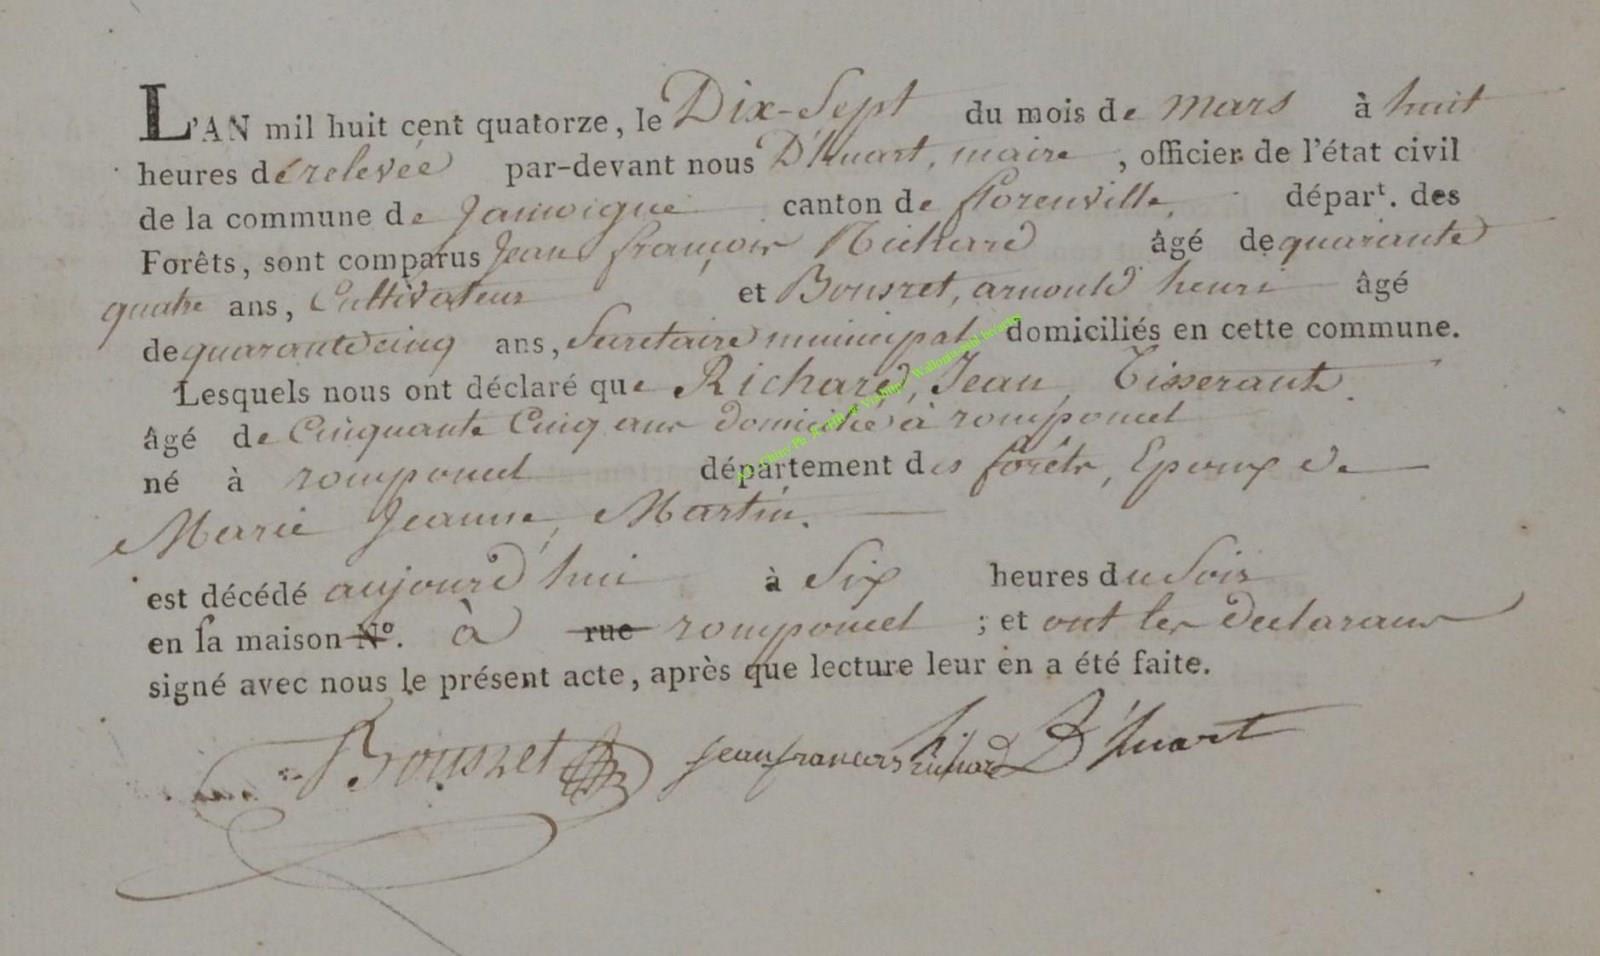 L'AN mil huit cent quatorze, le Dix-Sept du mois de mars à huit
heures de relevée par-devant nous D'huart, maire, officier de l'état civil
de la commune de Jamoigne canton de florenville, départ. des
Forêts, sont comparus Jean françois Richard âgé de quarante
quatre ans, Cultivateur et Bousret, arnould henri âgé
de quarante cinq ans, Secretaire municipal domiciliés en cette commune.
Lesquels nous ont déclaré que Richard, Jean, Tisserant,
âgé de Cinquante Cinq ans domicilié à romponcel
né à romponcel département des forêts, Epoux de
Marie Jeanne, Martin.
est décédé aujourd'hui à Six heures du Soir
en sa maison N°. à rue romponcel ; et ont les declarans
signé avec nous le présent acte, après que lecture leur en a été faite.
Bousret Jean francois Richard D'huart